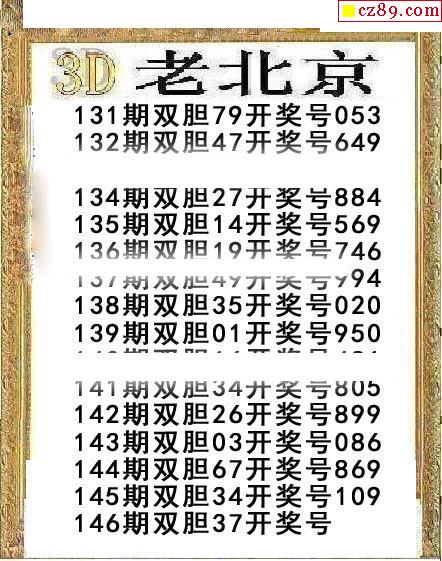 cz89.com
3D 老北京
131期双胆79开奖号053
132期双胆47开奖号649
134期双胆27开奖号884
135期双胆14开奖号569
136期双胆19开奖号746
137期双胆49开奖号994
138期双胆35开奖号020
139期双胆01开奖号950
141期双胆34开奖号805
142期双胆26开奖号899
143期双胆03开奖号086
144期双胆67开奖号869
145期双胆34开奖号109
146期双胆37开奖号